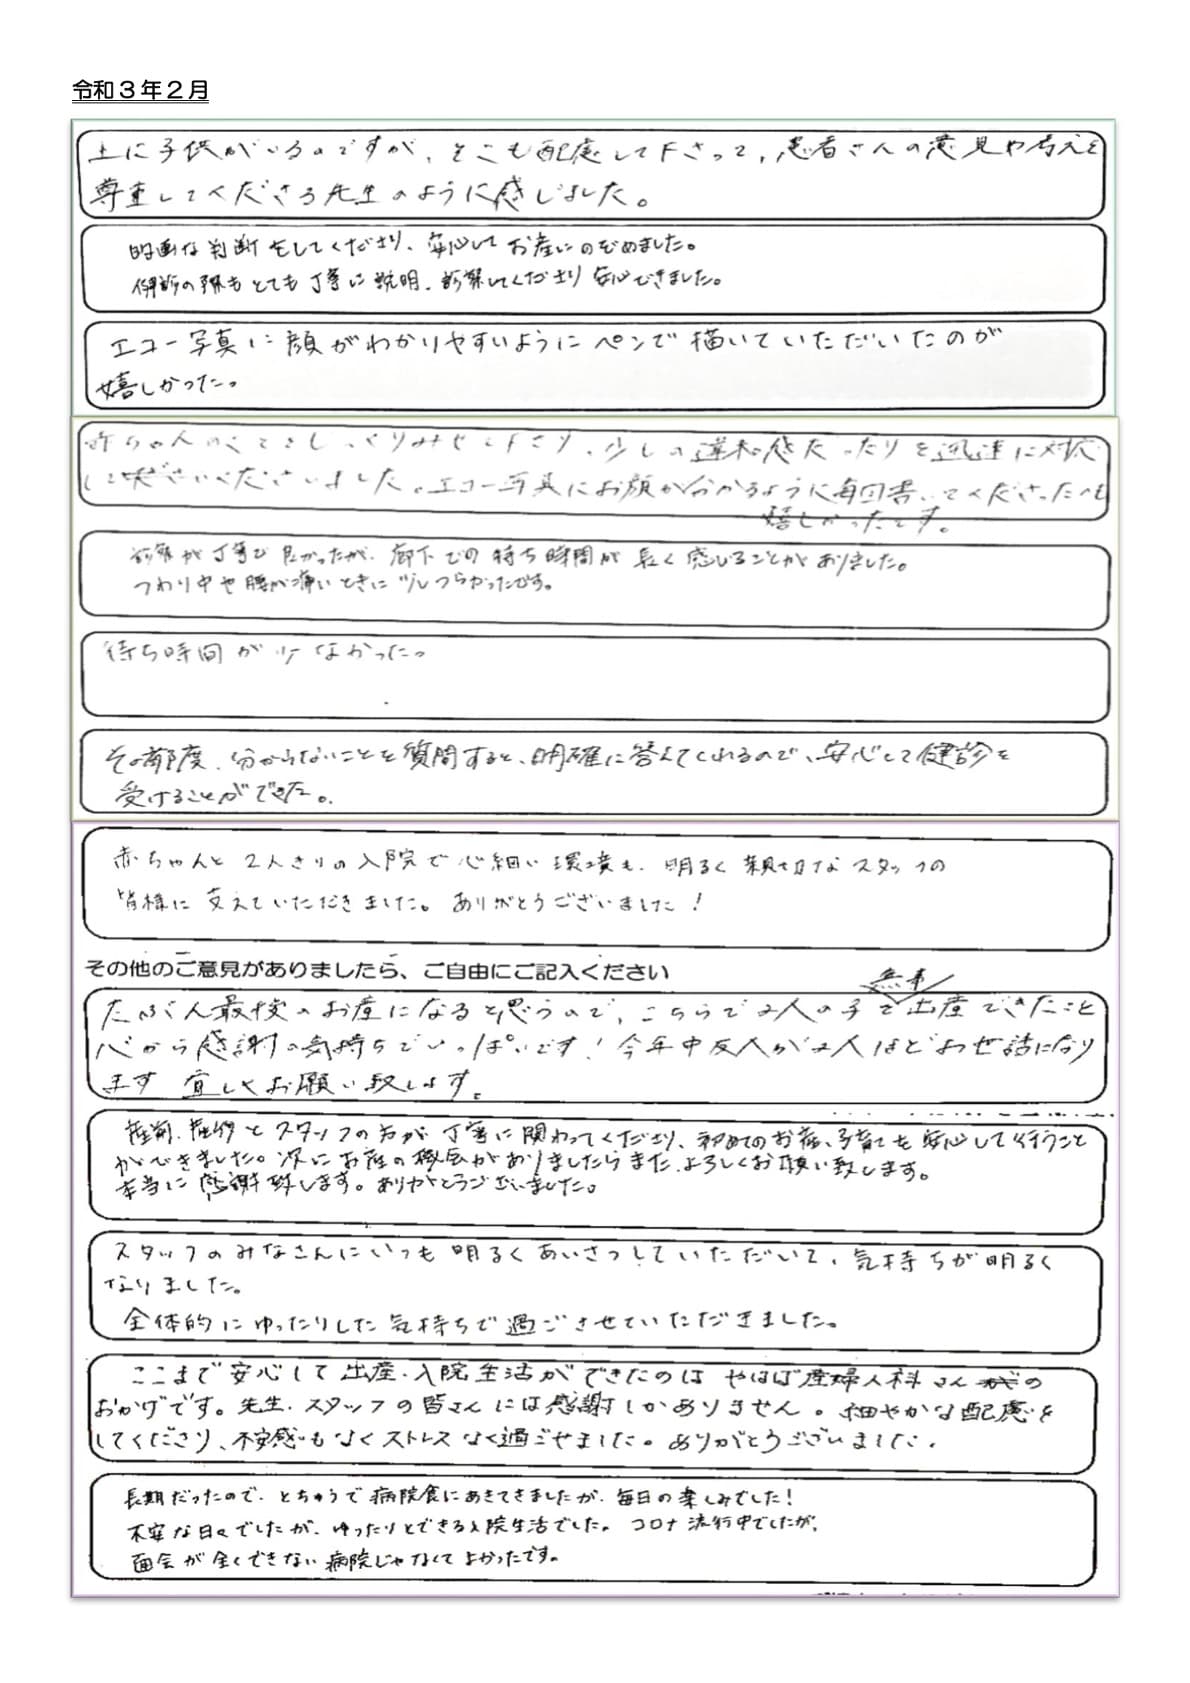 令和３年２月
上に子供がいるのですが、そこも配慮して下さって、患者さんの意見や考えを
尊重してくださる先生のように感じました。
的確な判断をしてくださり、安心してお産にのぞめました。
健診の際もとても丁寧に説明、診察してくださり安心できました。
エコー写真に顔がわかりやすいようにペンで描いていただいたのが
嬉しかった。
赤ちゃん いくてさしっくりみせて下さり、少しの違和感だったりを迅速に対応
して くださいました。エコー写真にお顔が分かるように毎回書いてくださったのも
嬉しかったです。
診察が丁寧で良かったが、廊下での待ち時間が長く感じることがありました。
つわり中や腰が痛いときに少しつらかったです。
待ち時間が少なかった。
その都度、分からないことを質問すると、明確に答えてくれるので、安心して健診を
受けることができた。
赤ちゃんと2人きりの入院で心細い環境も、明るく親切なスタッフの
皆様に支えていただきました。ありがとうございました！
その他のご意見がありましたら、ご自由にご記入ください
無事
たぶん最後のお産になると思うので、こちらで2人の子を出産できたこと
心から感謝の気持ちでいっぱいです！今年中友人が2人ほどお世話になり
ます 宜しくお願い致します。
産前、産後とスタッフの方が丁寧に関わってくださり、初めてのお産、子育ても安心して行うこと
ができました。次にお産の機会がありましたらまたよろしくお願い致します。
本当に感謝致します。ありがとうございました。
スタッフのみなさんにいつも明るくあいさつしていただいて、気持ちが明るく
なりました。
全体的にゆったりした気持ちで過ごさせていただきました。
ここまで安心して出産、入院生活ができたのはやはば産婦人科さんの
おかげです。先生、スタッフの皆さんには感謝しかありません。細やかな配慮を
してくださり、不安感もなくストレスなく過ごせました。ありがとうございました。
長期だったので、とちゅうで病院食にあきてきましたが、毎日の楽しみでした！
不安な日々でしたが、ゆったりとできる入院生活でした。コロナ流行中でしたが、
面会が全くできない病院じゃなくてよかったです。